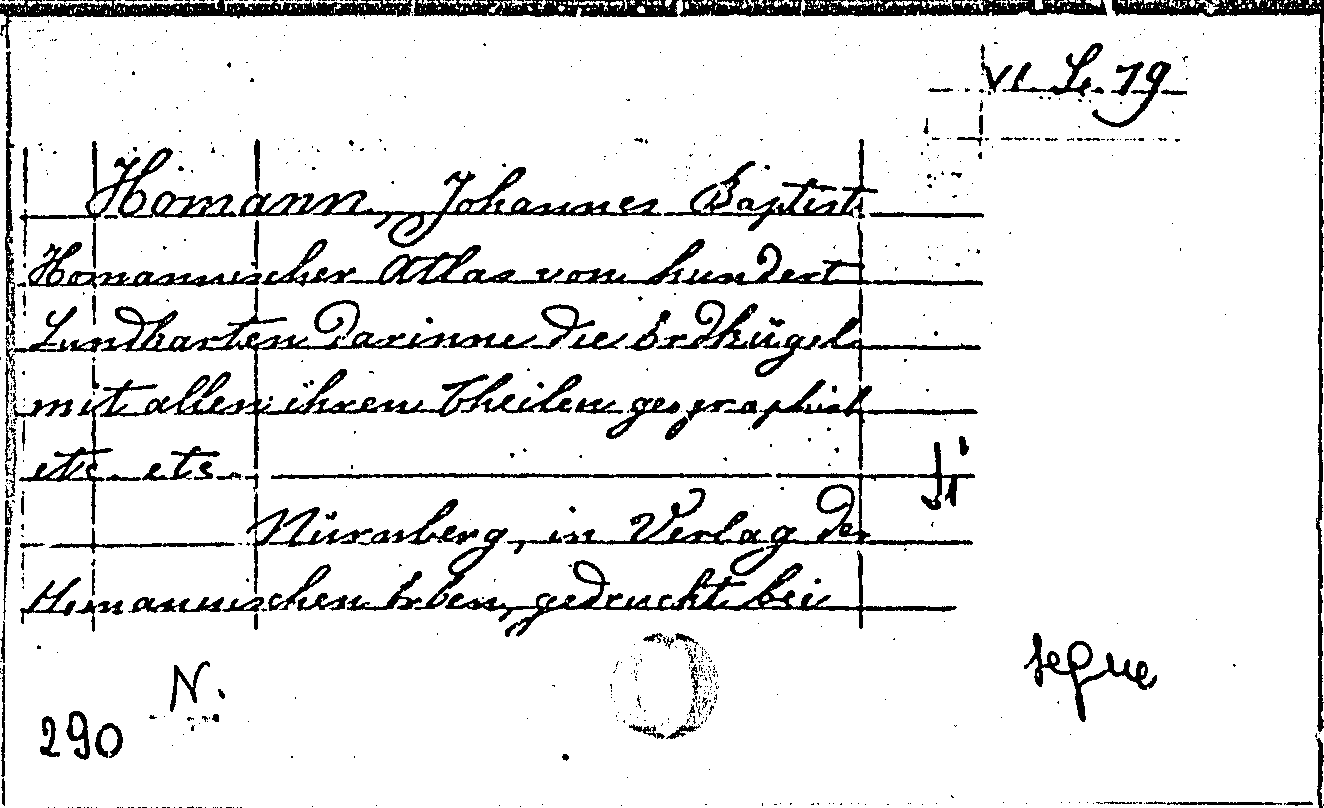 VI. Se. 19
Homann, Johannes Baptist
Homannischer Atlas vom hundert
Landkarten darinne die Erdkügel
mit allen ihren Theilen geographisch
etc. etc.
Nürnberg, in Verlag der
Homannischen Erben, gedruckt bei
segue
N.
290